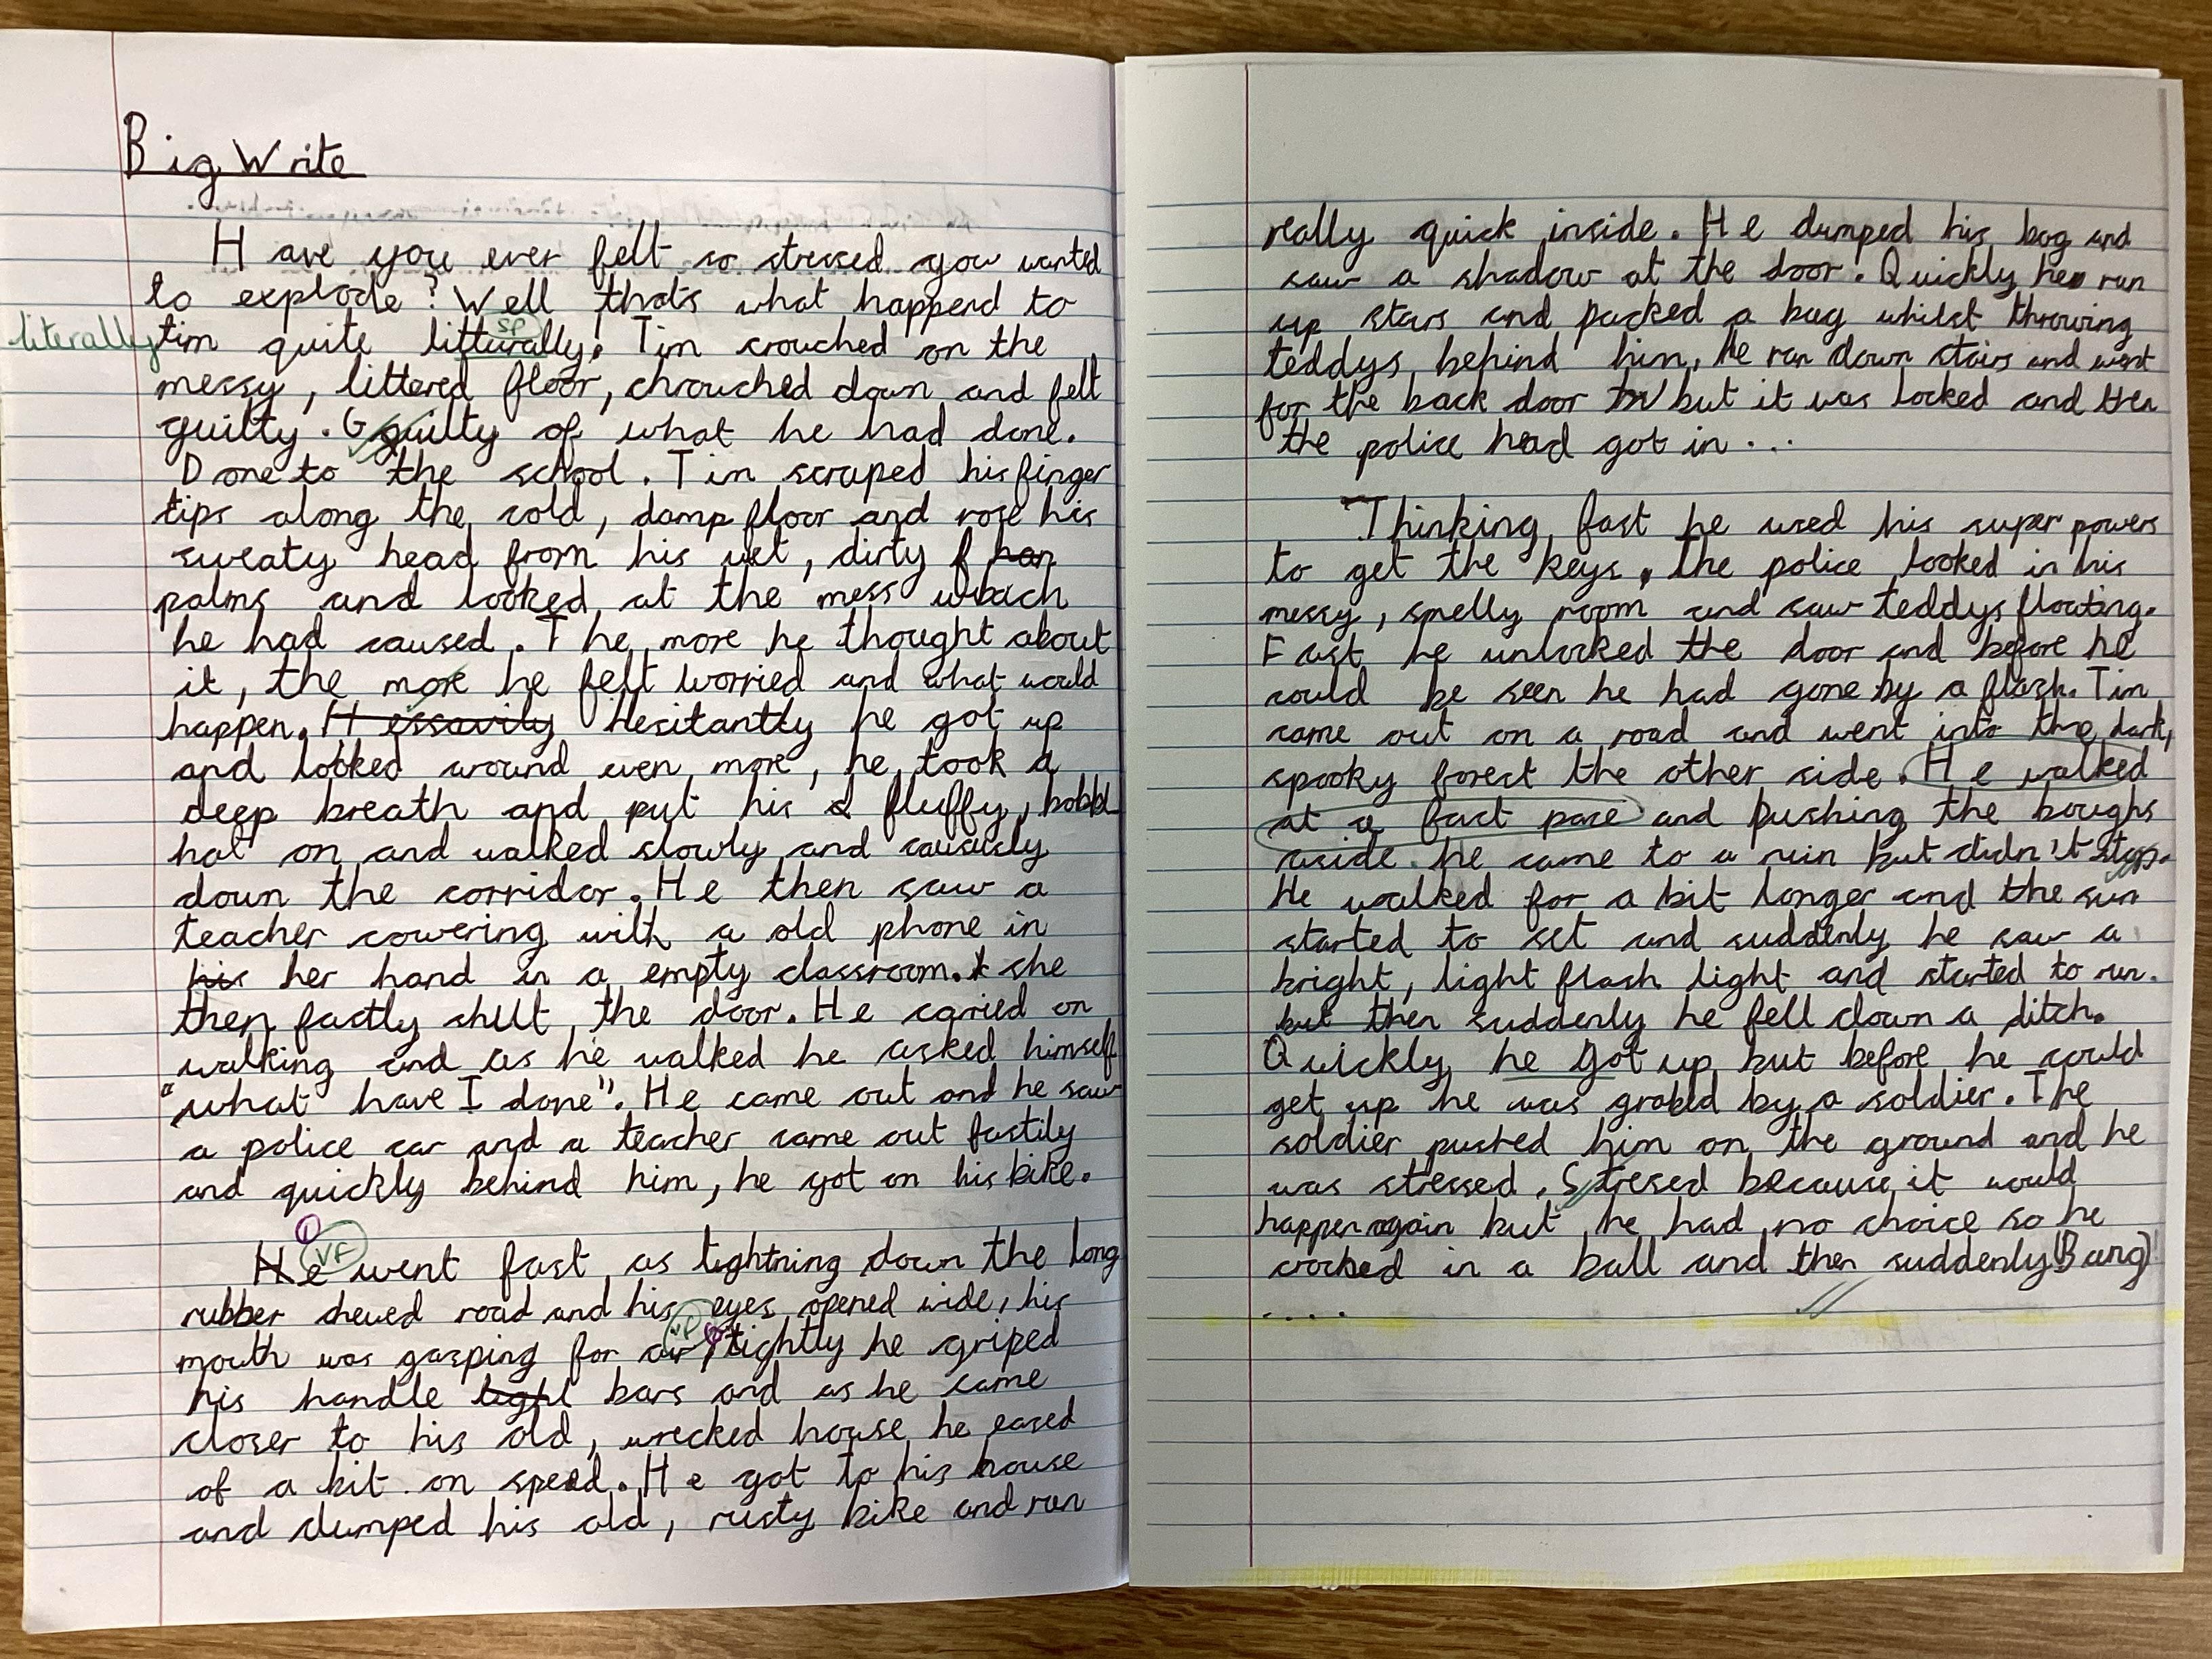 Big Write
Have you ever felt so stressed you wanted
to explode? Well that's what happend to
literally
sp
tim quite litturally. Tim crouched on the
messy, littered floor, chrouched down and felt
guilty. Guilty of what he had done.
Done to the school. Tim scraped his finger
tips along the cold, damp floor and rose his
sweaty head from his wet, dirty f han
palms and looked at the mess
he had caused. The more he thought about
it, the more he felt worried and what would
happen. Hessavily Hesitantly he got up
and looked around even more, he took a
deep breath and put his fluffy, bobbl
hat on and walked slowly and caususly
down the corridor. He then saw a
teacher cowering with a old phone in
his her hand in a empty classroom. she
then fastly shut the door. He caried on
walking and as he walked he asked himself
"what have I done". He came out and he saw
a police car and a teacher came out fastily
and quickly behind him, he got on his bike.
VF
He went fast as lightning down the long
rubber chewed road and his eyes opened wide, his
mouth was gasping for air, tightly he griped
his handle tight bars and as he came
closer to his old, wrecked house he eased
of a bit on speed. He got to his house
and dumped his old, rusty bike and ran
really quick inside. He dumped his bag and
saw a shadow at the door. Quickly he ran
up stars and packed a bag whilst throwing
teddys behind him, he ran down stairs and went
for the back door but it was locked and then
the police head got in ...
Thinking fast he used his super powers
to get the keys, the police looked in his
messy, smelly room and saw teddys floating.
Fast he unlocked the door and before he
could be seen he had gone by a flash. Tim
came out on a road and went into the dark,
spooky forest the other side. He walked
at a fast pace and pushing the boughs
aside. he came to a ruin but didn't stop.
He walked for a bit longer and the sun
started to set and suddenly he saw a
bright, light flash light and started to run.
but then suddenly he fell down a ditch.
Quickly he got up but before he could
get up he was grabbd by a soldier. The
soldier pushed him on the ground and he
was stressed. Stresed because it would
happen again but he had no choice so he
crocked in a ball and then suddenly Bang
....